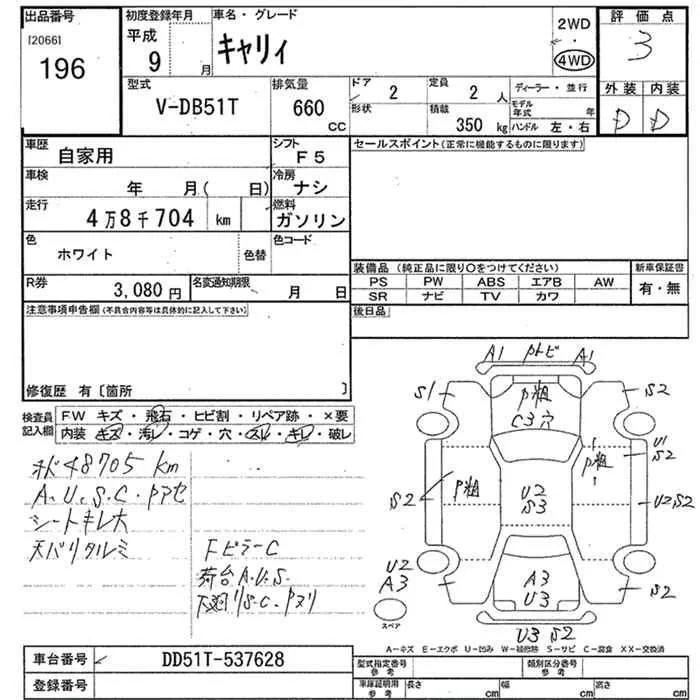 出品番号
[2066]
196
初度登録年月
平成
9
月
車名・グレード
キャリィ
2WD
・
4WD
評価点
3
型式
V-DB51T
排気量
660
cc
ドア
2
形状
定員
2 人
積載
350 kg
ディーラー・並行
モデル年式
年
ハンドル 左・右
外装 内装
D D
車歴
自家用
シフト
F5
車検
年 月( 日)
冷房
ナシ
走行
4万8千704 km
燃料
ガソリン
色
ホワイト
色替
色コード
R券
3,080 円
名変通知期限
月 日
セールスポイント(正常に機能するものに限ります)
装備品 (純正品に限り○をつけてください)
PS PW ABS エアB AW
SR ナビ TV カワ
新車保証書
有・無
後日品
注意事項申告欄(不具合内容等は具体的に記入して下さい)
修復歴 有〔箇所 〕
検査員記入欄
FW キズ・飛石・ヒビ割・リペア跡・×要
内装 キズ・汚レ・コゲ・穴・スレ・キレ・破レ
48705 km
A、U、S、C、Pアセ
シートキレ大
天バリタルミ
FピラーC
荷台A.U.S.
下廻リS.C.Pヌリ
A1 Pトビ A1
S1
S2
P粗
C3穴
U1
S2
P粗
P粗
S2
U2
S3
U2 S2
U2
A3
A3
U3
S2
U3 S2
スペア
A-キズ E-エクボ U-凹み W-補修跡 S-サビ C-腐食 XX-交換済
車台番号
DD51T-537628
登録番号
型式指定番号
参考
類別区分番号
参考
車庫証明用
参考
長さ cm
幅 cm
高さ cm